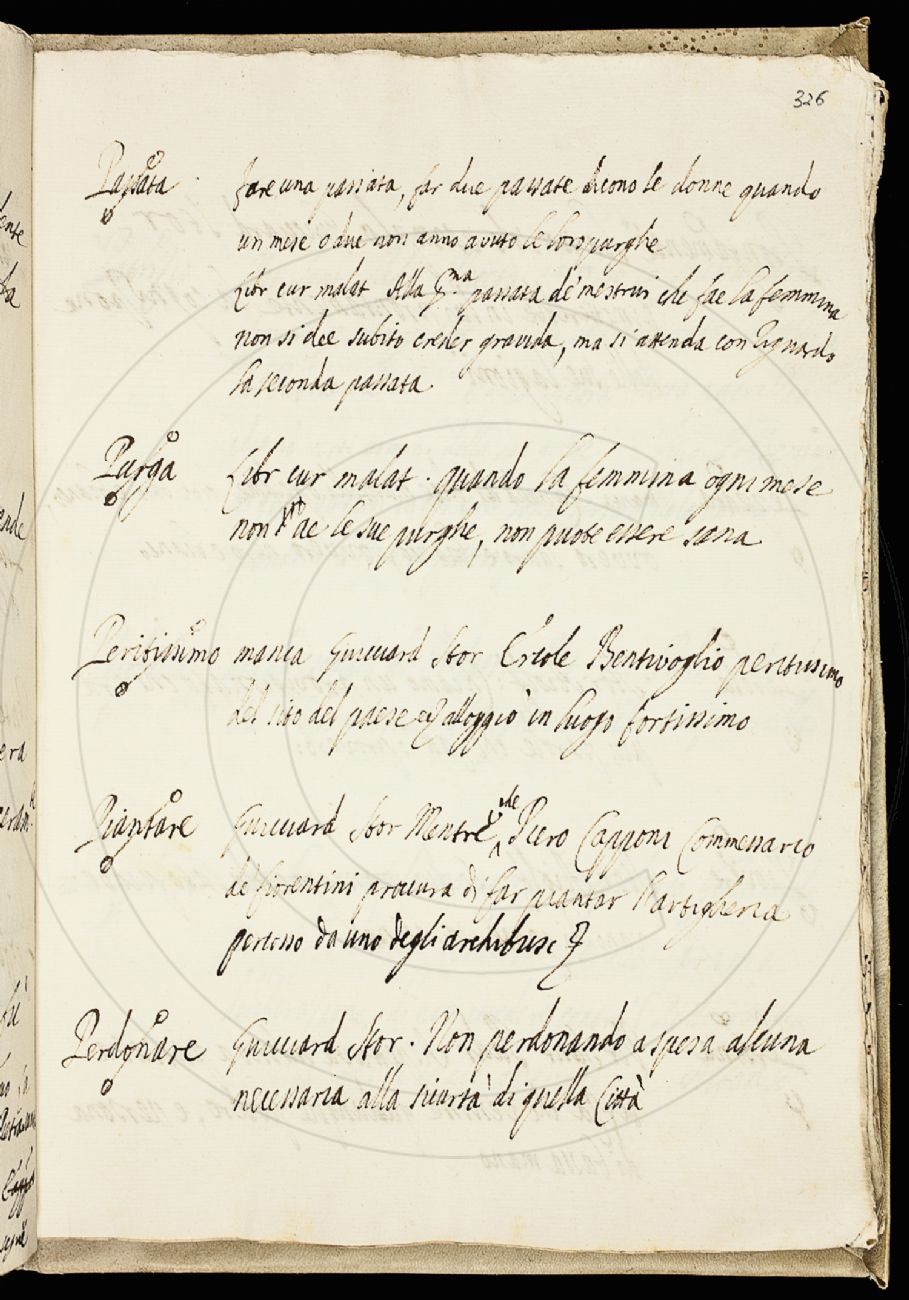 326
Passata fare una passata, far due passate dicono le donne quando
un mese o due non anno avuto le lor purghe
Libr cur malat Alla pma passata de mestrui che fae la femmina
non si dee subito creder gravida, ma si attenda con riguardo
la seconda passata.
Purga Libr cur malat. quando la femmina ogni mese
non ae le sue purghe, non puote essere sana
Peritissimo manca Guicciard Stor Ercole Bentivoglio peritissimo
del sito del paese alloggiò in luogo fortissimo
Piantare Guicciard Stor Mentre che Piero Capponi Commessario
de fiorentini procura di far piantar l'artiglieria
percosso da uno degli archibusi
Perdonare Guicciard Stor. Non perdonando a spesa alcuna
necessaria alla sicurtà di quella Città